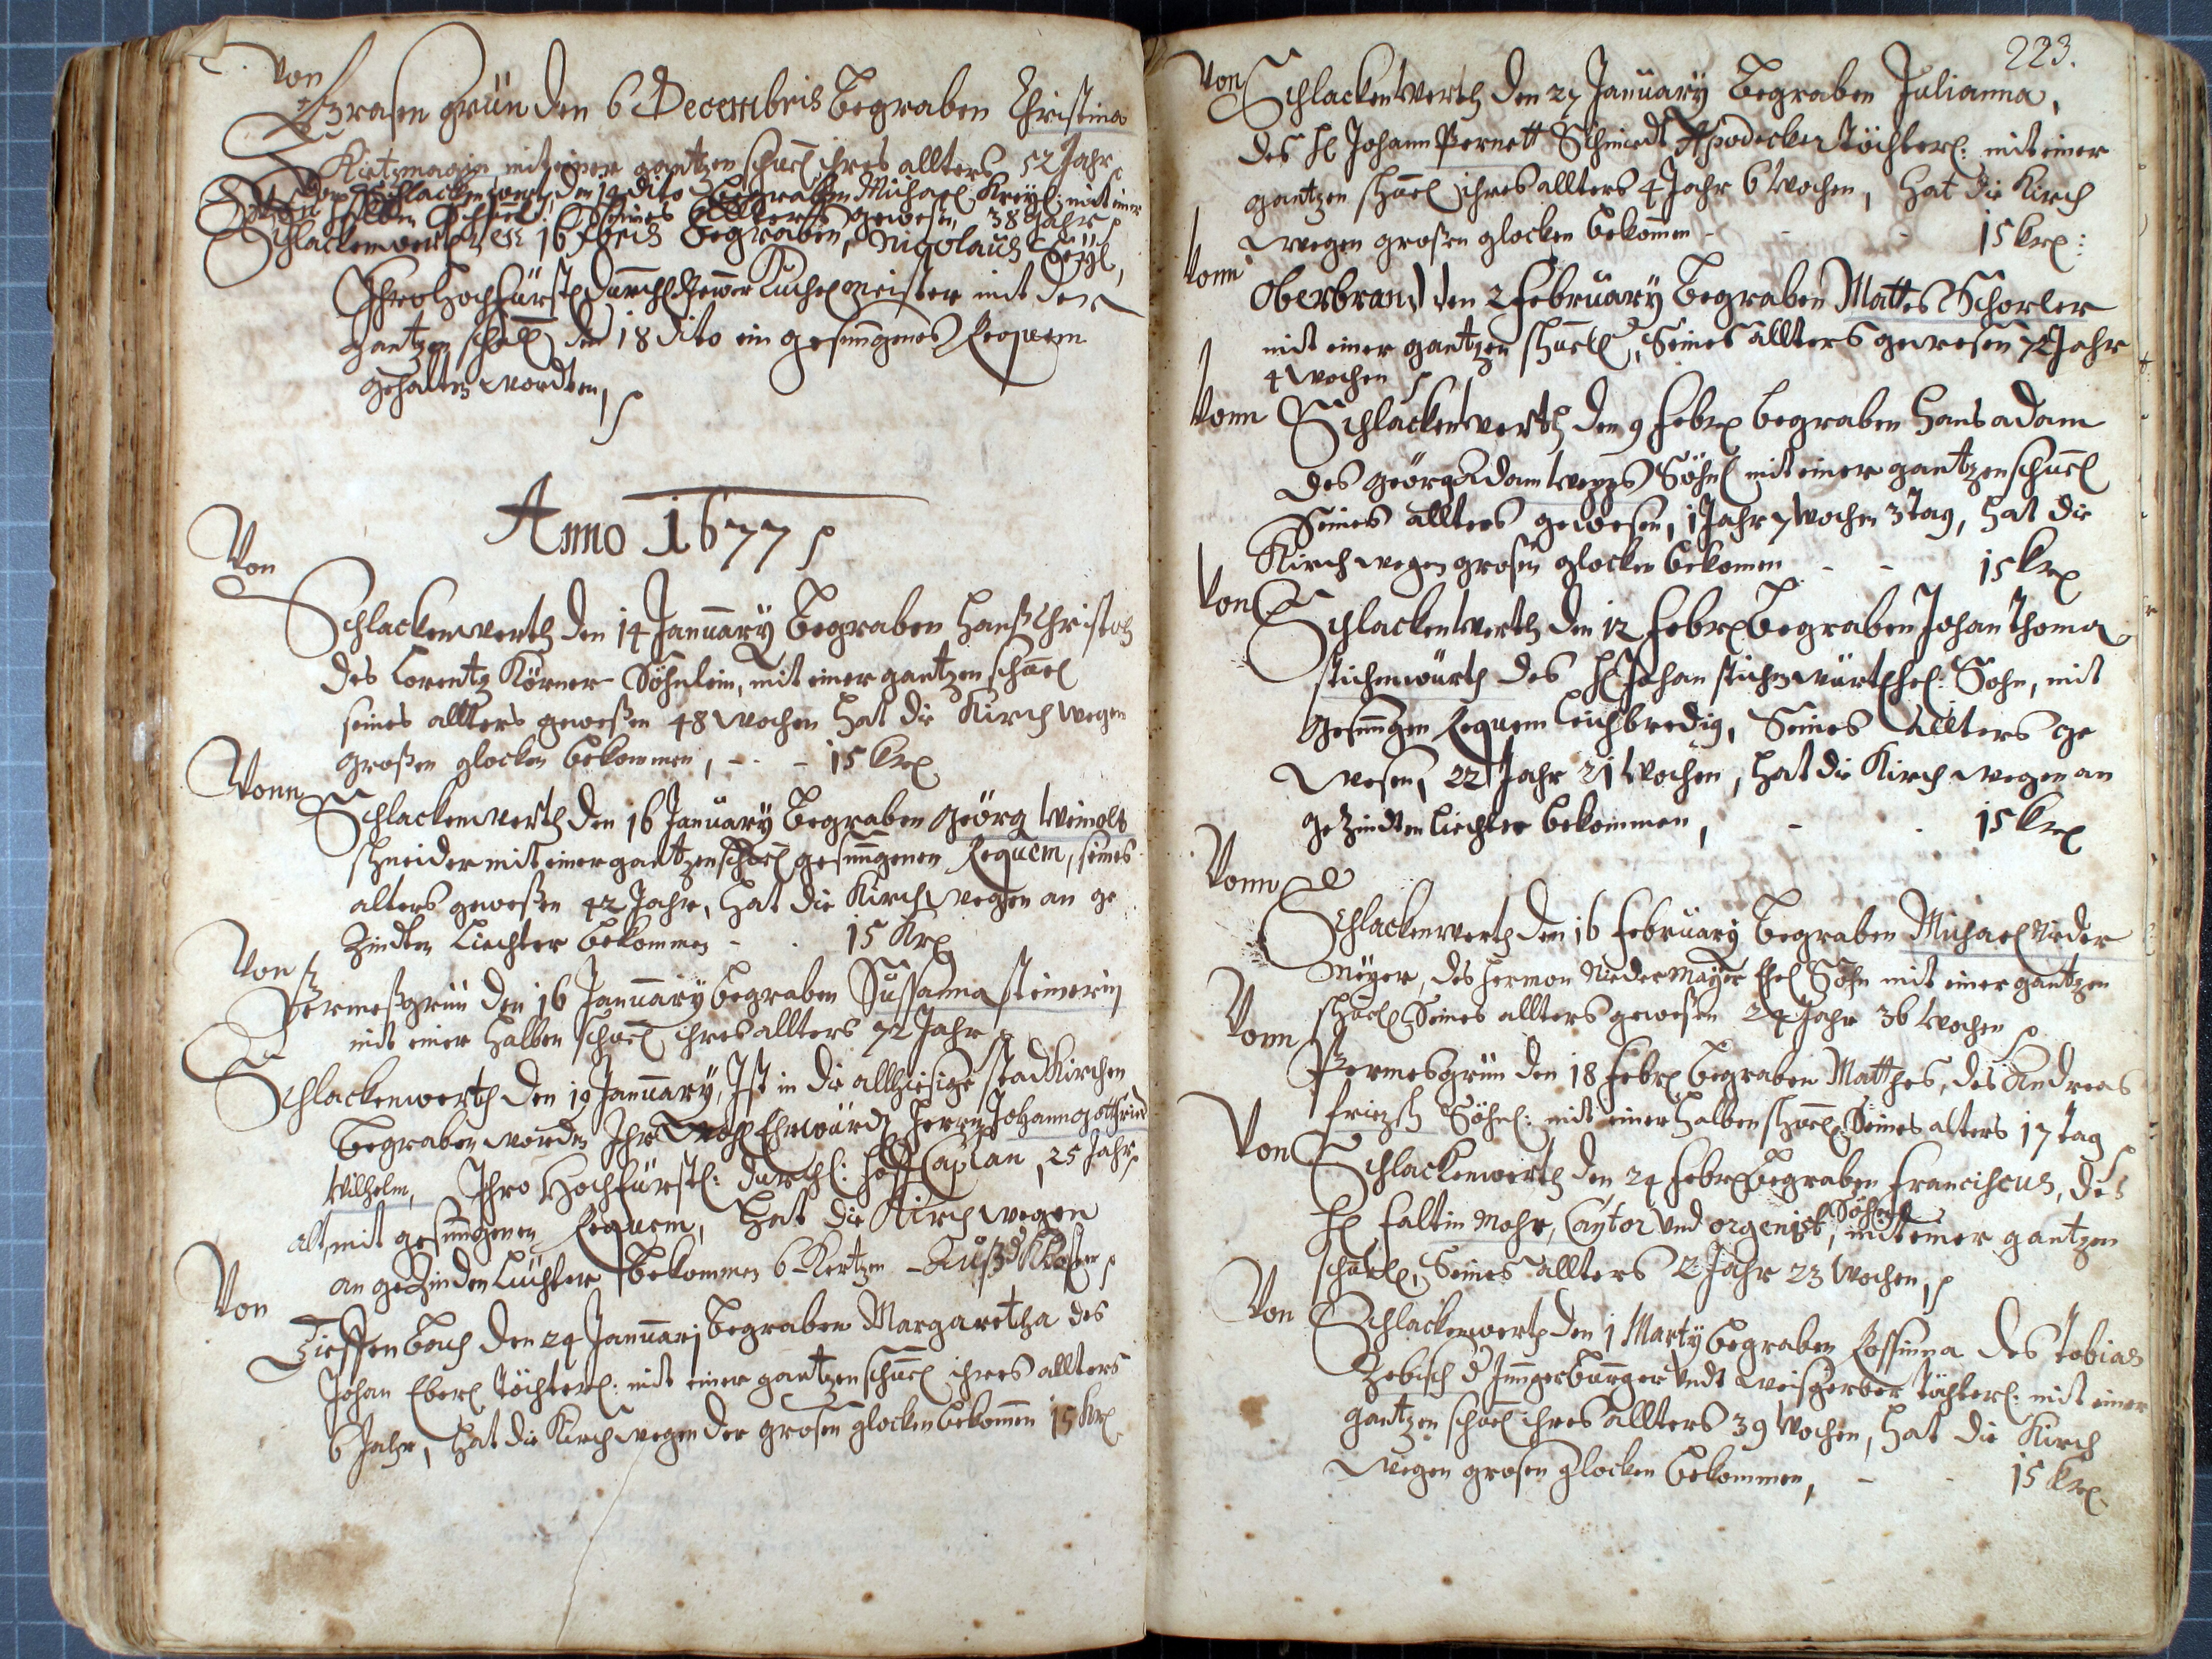 Von
Grasengrün den 6 Decembris Begraben Christina
mit einer gantzen schuel ihres allters 52 Jahr
Von Schlackenwert, den 14 dito Begraben Michael Kreyl: mit einer
halben Schuel: Seines Allters gewesen, 38 Jahr
Schlackenwerth den 16 Xbris Begraben, Nigolaus
Ihro Hochfürstl Durchl gewester Kuchelmeister mit der
gantzen schuel den 18 dito ein gesungenes Requem
gehalten wordten,
Anno 1677
Von
Schlackenwerth den 14 Januäry Begraben Hanß Christoph
des Lorentz Körner Söhnlein, mit einer gantzen schuel
seines allters geweßen 48 Wochen Hat die Kirch wegen
großen glocken bekommen, - - - 15 Krz
Vonn
Schlackenwerth den 16 Januäry Begraben Geörg Weinolt
schneider mit einer gantzen schuel gesungenen Requem, seines
alters geweßen 42 Jahr, Hat die Kirch wegen an ge
Zindten Liechter bekommen - - 15 Krz
Von
Permeßgrün den 16 Januäry begraben Sussanna steinerin
mit einer Halben schuel ihres allters 72 Jahr
Schlackenwerth den 19 Januäry, Ist in die allhiesige stadkirchen
Begraben worden Ihro Wohl Ehrwürd Herrn Johann gottfried
Wilhelm, Ihro Hochfürstl: Durchl: Hoff Caplan, 25 Jahr
alt, mit gesungenen Requem, Hat die Kirch wegen
an geZinden Liechter bekommen 6 Kertzen
Von
Tieffenbach den 24 Januarj Begraben Margaretha des
Johan Eberl Töchterl: mit einer gantzen schuel ihres allters
6 Jahr, Hat die Kirch wegen der grosen glocken bekommen 15 Krz
223.
Von Schlackenwerth den 27 Januäry Begraben Julianna,
des H Johann Bernett Schmiedt Apodecker Töchterl: mit einer
gantzen schuel ihres allters 4 Jahr 6 Wochen, Hat die Kirch
wegen großen glocken bekommen - - 15 Krz:
Vonn
Oberbrand den 2 February Begraben Mattes Schorler
mit einer gantzen schuell, Seines allters gewesen 72 Jahr
4 Wochen
Vonn Schlackenwerth den 9 Febrz begraben Hans adam
des Geörg Adam Seÿgs Söhnl mit einer gantzen schuel
Seines allters gewesen, 1 Jahr 7 wochen 3 tag, Hat die
Kirch wegen grosen glocken bekomen - - 15 Krz
Von
Schlackenwerth den 12 Febrz Begraben Johan Thoma
stichenwürth des H Johan stichenwürth Ehel: Sohn, mit
gesungen Requem Leichbredig, Seines Allters ge
wesen, 22 Jahr 21 Wochen, Hat die Kirch wegen an
geZindten Liechter bekommen, - - 15 Krz
Vonn
Schlackenwerth den 16 February Begraben Michael Nider
Meÿer, des Herman Nidermayer Ehel Sohn mit einer gantzen
schuel Seines allters geweßen 24 Jahr 36 Wochen
Vonn
Permesgrün den 18 Febrz Begraben Matthes, des Andreas
fritzsch Söhnl: mit einer Halben schuel, Seines alters 17 tag
Von Schlackenwerth den 24 Febrz Begraben Franciscus, des
H Faltin Mohr, Cantor und orgenist, Söhnl mit einer gantzen
schuel, Seines allters 2 Jahr 23 Wochen,
Von Schlackenwerth den 1 Martÿ begraben Rossinna des Tobias
Zebisch d Junger burger undt weisgerber Töchterl: mit einer
gantzen schuel ihres allters 39 Wochen, Hat die Kirch
wegen grosen glocken bekommen, - - 15 Krz